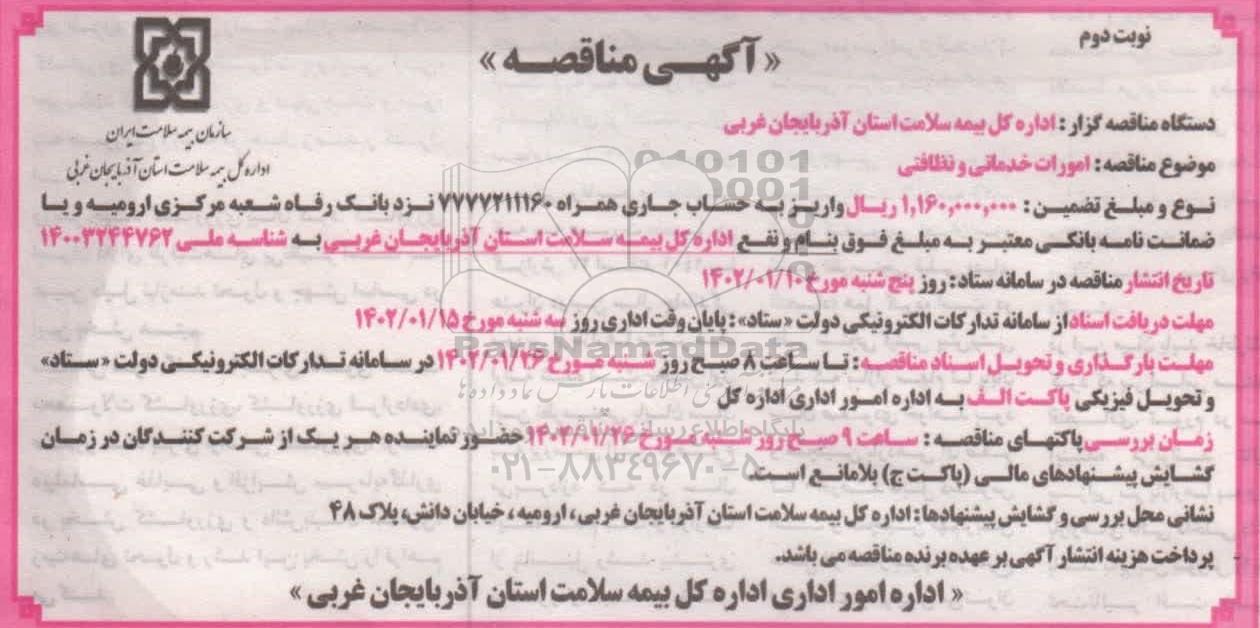 نوبت دوم
« آگهی مناقصه »
سازمان بیمه سلامت ایران
اداره کل بیمه سلامت استان آذربایجان غربی
دستگاه مناقصه گزار : اداره کل بیمه سلامت استان آذربایجان غربی
موضوع مناقصه : امورات خدماتی و نظافتی
نوع و مبلغ تضمین : ۱,۱۶۰,۰۰۰,۰۰۰ ریال واریز به حساب جاری همراه ۷۷۷۷۲۱۱۱۶۰ نزد بانک رفاه شعبه مرکزی ارومیه و یا
ضمانت نامه بانکی معتبر به مبلغ فوق بنام و نفع اداره کل بیمه سلامت استان آذربایجان غربی به شناسه ملی ۱۴۰۰۳۲۴۴۷۶۲
تاریخ انتشار مناقصه در سامانه ستاد : روز پنج شنبه مورخ ۱۴۰۲/۰۱/۱۰
مهلت دریافت اسناد از سامانه تدارکات الکترونیکی دولت «ستاد» : پایان وقت اداری روز سه شنبه مورخ ۱۴۰۲/۰۱/۱۵
مهلت بارگذاری و تحویل اسناد مناقصه : تا ساعت ۸ صبح روز شنبه مورخ ۱۴۰۲/۰۱/۲۶ در سامانه تدارکات الکترونیکی دولت «ستاد»
و تحویل فیزیکی پاکت الف به اداره امور اداری اداره کل
زمان بررسی پاکتهای مناقصه : ساعت ۹ صبح روز شنبه مورخ ۱۴۰۲/۰۱/۲۶ حضور نماینده هر یک از شرکت کنندگان در زمان
گشایش پیشنهادهای مالی (پاکت ج) بلامانع است.
نشانی محل بررسی و گشایش پیشنهادها : اداره کل بیمه سلامت استان آذربایجان غربی، ارومیه ، خیابان دانش، پلاک ۴۸
- پرداخت هزینه انتشار آگهی بر عهده برنده مناقصه می باشد.
« اداره امور اداری اداره کل بیمه سلامت استان آذربایجان غربی »
ParsNamadData
۰۲۱-۸۸۳۴۹۶۷۰-۵